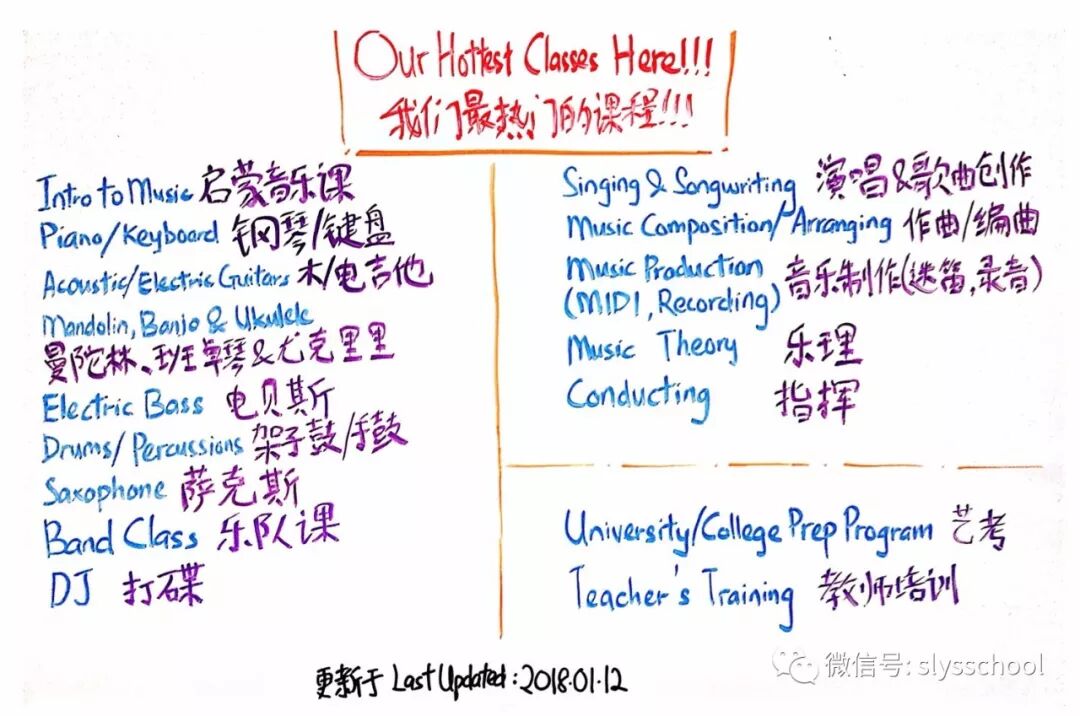 Our Hottest Classes Here!!!
我们最热门的课程!!!
Intro to Music 启蒙音乐课
Piano/Keyboard 钢琴/键盘
Acoustic/Electric Guitars 木/电吉他
Mandolin, Banjo & Ukulele
曼陀林、班卓琴&尤克里里
Electric Bass 电贝斯
Drums/Percussions 架子鼓/手鼓
Saxophone 萨克斯
Band Class 乐队课
DJ 打碟
Singing & Songwriting 演唱&歌曲创作
Music Composition/Arranging 作曲/编曲
Music Production
(MIDI, Recording) 音乐制作(迷笛,录音)
Music Theory 乐理
Conducting 指挥
University/College Prep Program 艺考
Teacher's Training 教师培训
更新于 Last Updated: 2018.01.12
微信号: slysschool